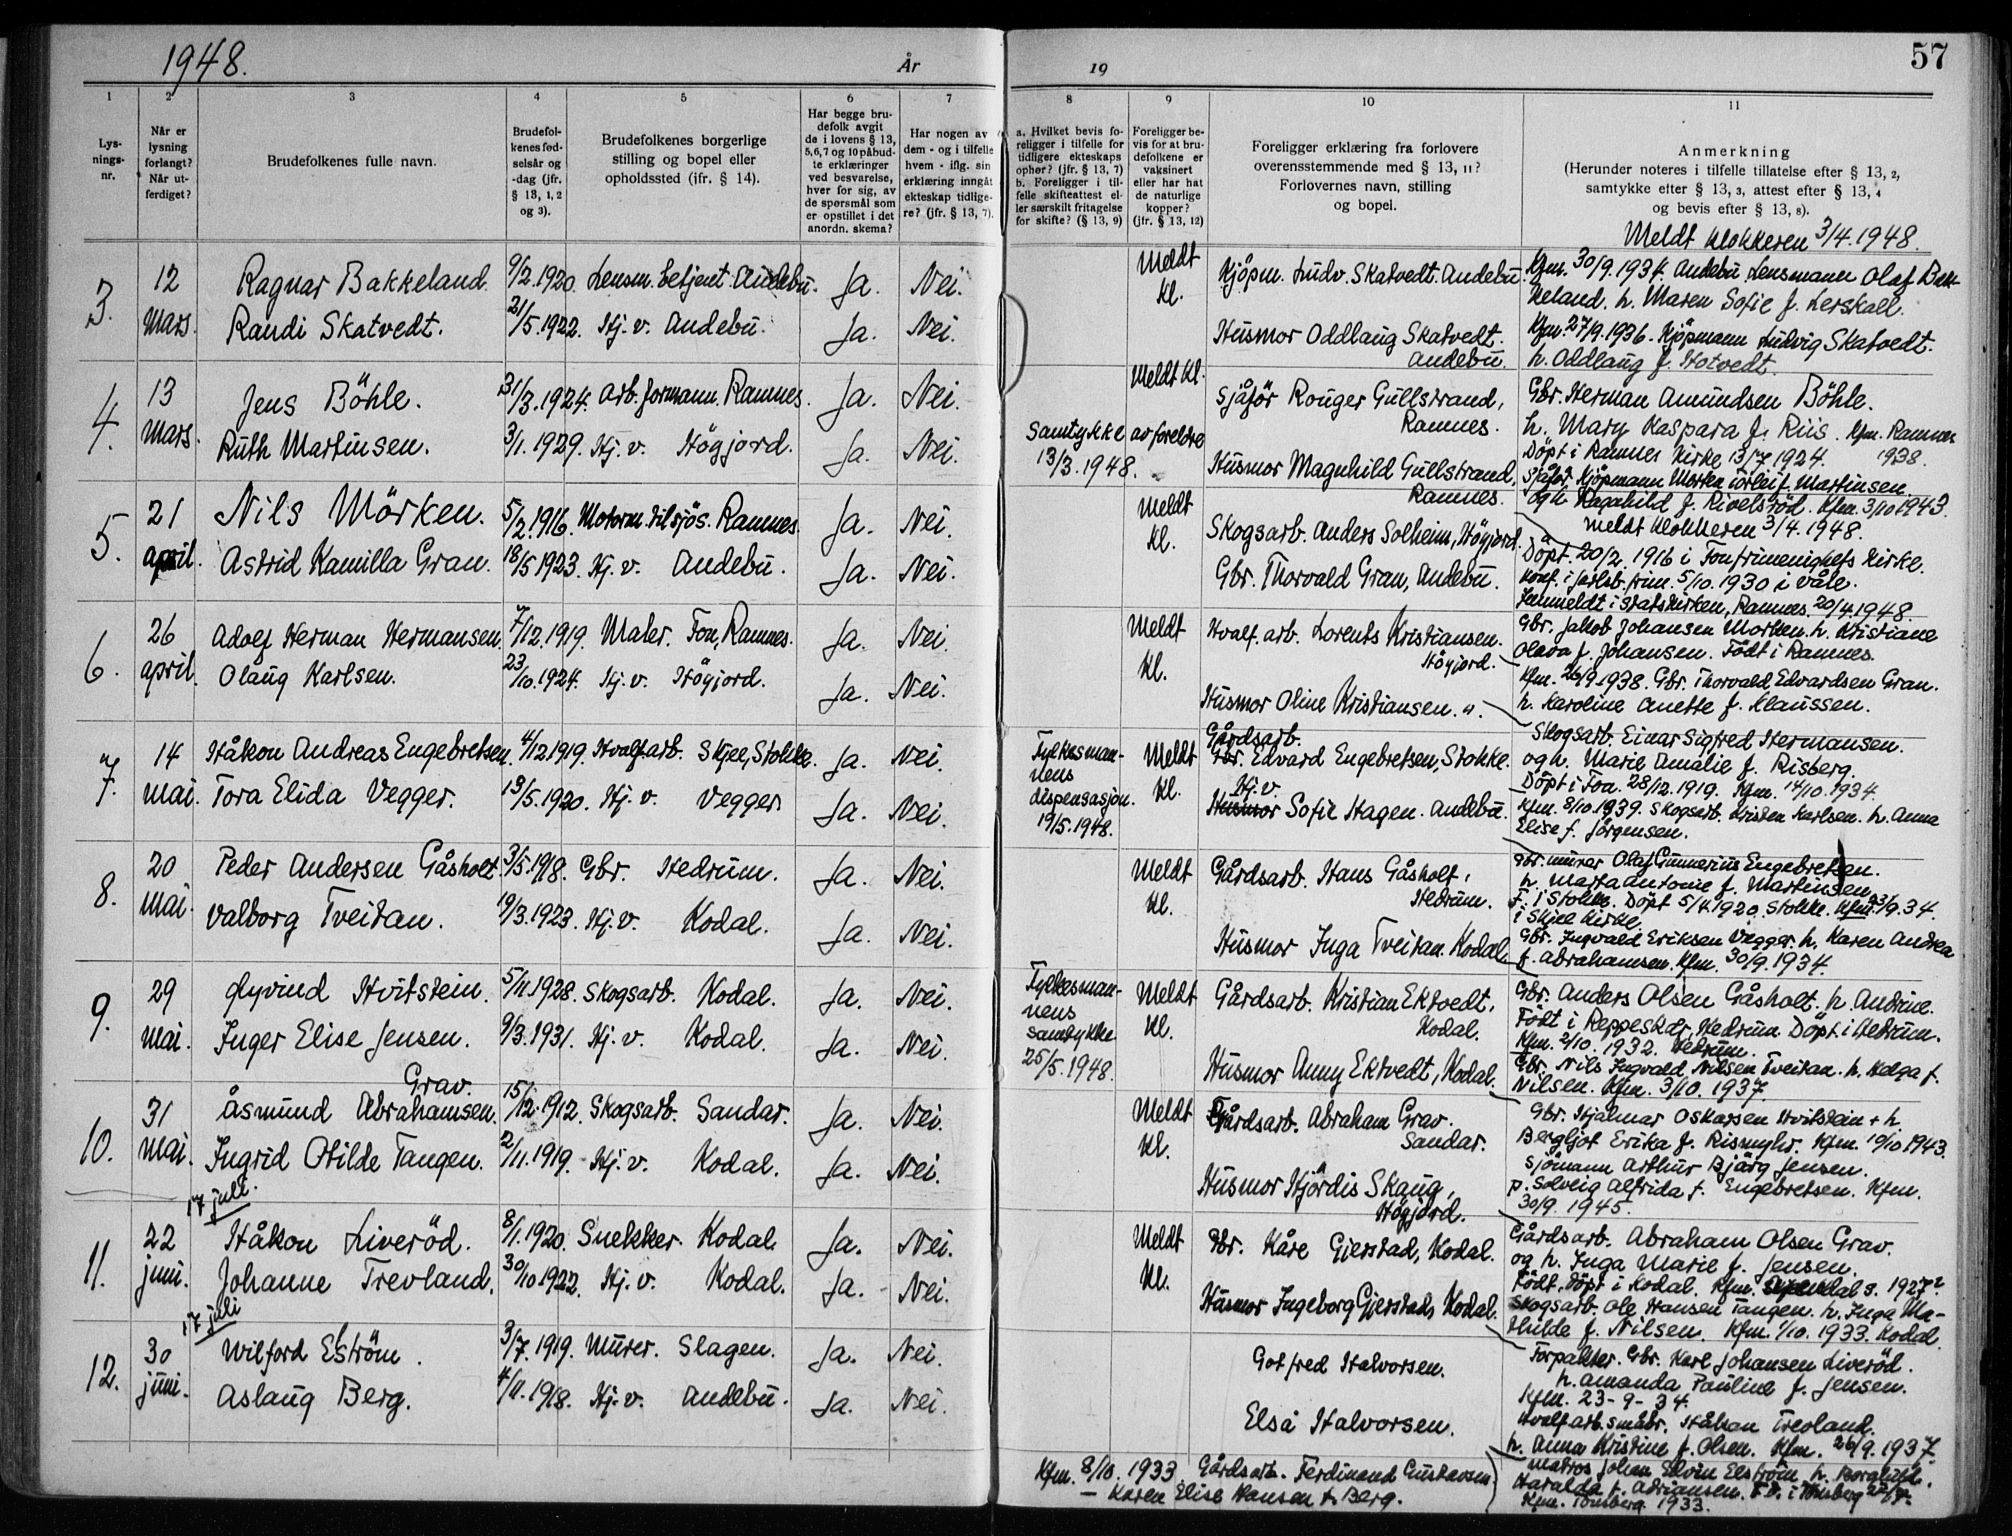 1948.
År
19
57
1
2
3
4
5
6
7
8
9
10
11
Lys-
nings-
nr.
Når er
lysning
forlangt?
Når ut-
ferdiget?
Brudefolkenes fulle navn.
Brudefol-
kenes fød-
selsår og
-dag (jfr.
§ 13, 1, 2
og 3).
Brudefolkenes borgerlige
stilling og bopel eller
opholdssted (jfr. § 14).
Har begge bru-
defolk avgit
de i lovens § 13,
5,6,7 og 10 påbud-
te erklæringer
ved besvarelse,
hver for sig, av
de spørsmål som
er opstillet i det
anordn. skema?
Har nogen av
dem - og i tilfelle
hvem - iflg. sin
erklæring inngåt
ekteskap tidlige-
re? (jfr. § 13, 7).
a. Hvilket bevis fo-
religger i tilfelle for
tidligere ekteskaps
ophør? (jfr. § 13, 7)
b. Foreligger i til-
felle skifteattest el-
ler særskilt fritagelse
for skifte? (§ 13, 9)
Foreligger be-
vis for at bru-
defolkene er
vaksinert
eller har hat
de naturlige
kopper?
(jfr. § 13, 12)
Foreligger erklæring fra forlovere
overensstemmende med § 13, 11?
Forlovernes navn, stilling
og bopel.
Anmerkning
(Herunder noteres i tilfelle tillatelse efter § 13, 2,
samtykke efter § 13, 3, attest efter § 13, 4
og bevis efter § 13, 8).
Meldt klokkeren 3/4.1948.
3. 12 mars. Ragnar Bakkeland. 9/2.1920. Lensm. betjent. Andebu. Ja. Nei.
Randi Skatvedt. 21/5.1922. Hj. v. Andebu. Ja. Nei.
Meldt kl.
Kjöpm. Ludv. Skatvedt. Andebu.
Husmor Oddlaug Skatvedt.
Andebu.
Kfm. 30/9.1934. Andebu. Lensmann Olaf Bak-
keland. h. Maren Sofie f. Lerskall.
Kfm. 27/9.1936. Kjöpmann Ludvig Skatvedt.
h. Oddlaug f. Hotvedt.
4. 13 mars. Jens Böhle. 31/3.1924. Arb. formann. Ramnes. Ja. Nei.
Ruth Martinsen. 3/1.1929. Hj. v. Högjord. Ja. Nei.
Meldt kl.
Samtykke av foreldre
13/3.1948.
Sjåför Rouger Gullstrand,
Ramnes.
Husmor Magnhild Gullstrand,
Ramnes.
Gbr. Herman Amundsen Böhle.
h. Mary Kaspara f. Riis. Kfm. Ramnes
1938.
Döpt i Ramnes kirke 13/7 1924.
Martinsen
og h. Ragnhild f. Rivelsröd. Kfm. 3/10 1943.
meldt klokkeren 3/4.1948.
5. 21 april. Nils Mörken. 5/2.1916. Motorm. til sjös. Ramnes. Ja. Nei.
Astrid Kamilla Gran. 18/5 1923. Hj. v. Andebu. Ja. Nei.
Meldt kl.
Skogsarb. Anders Solheim, Högjord.
Gbr. Thorvald Gran, Andebu.
Döpt. 20/2. 1916 i Fon frimenighets kirke.
Konf. i Jarlsb. frim. 5/10.1930 i Våle.
Innmeldt i statskirken, Ramnes. 20/4 1948.
Gbr. Jakob Johansen Morken. h. Kristiane
Olava f. Johansen. Född i Ramnes.
Kfm. 26/9.1938. Gbr. Thorvald Edvardsen Gran.
h. Karoline Anette f. Klaussen.
6. 26 april. Adolf Herman Hermansen. 7/12.1919. Maler. Fon, Ramnes. Ja. Nei.
Olaug Karlsen. 23/10.1924. Hj. v. Högjord. Ja. Nei.
Meldt kl.
Hvalf. arb. Lorents Kristiansen.
Högjord.
Husmor Oline Kristiansen. ".
Skogsarb. Einar Sigfred Hermansen.
og h. Marie Amalie f. Risberg.
Döpt i Fon. 28/12.1919. Kfm. 14/10.1934.
Kfm. 8/10.1939. Skogsarb. Kristen Karlsen. h. Anna
Elise f. Jörgensen.
7. 14 mai. Håkon Andreas Engebretsen. 4/12.1919. Hvalfarb. Skjee, Stokke. Ja. Nei.
Tora Elida Vegger. 13/5.1920. Hj. v. Vegger. Ja. Nei.
Fylkesman-
nens
dispensasjon.
19/5.1948.
Meldt kl.
Gårdsarb.
Gbr. Edvard Engebretsen, Stokke.
Hj. v.
Husmor Sofie Hagen. Andebu.
Gbr. murer Olaf Gunnerius Engebretsen.
h. Marta Antonie f. Martinsen
F. i Stokke. Döpt 5/4 1920. Stokke. Kfm. 23/9.34.
i Skjee kirke.
Gbr. Ingvald Eriksen Vegger. h. Karen Andrea
f. Abrahamsen. Kfm. 30/9.1934.
8. 20 mai. Peder Andersen Gåsholt. 3/5.1918. Gbr. Hedrum. Ja. Nei.
Valborg Tveitan. 19/3.1923. Hj. v. Kodal. Ja. Nei.
Meldt kl.
Gårdsarb. Hans Gåsholt,
Hedrum.
Husmor Inga Tveitan. Kodal
Gbr. Anders Olsen Gåsholt. h. Andrine.
Född i Reppeskår, Hedrum Döpt i Hedrum.
Kfm. 2/10.1932. Hedrum.
Gbr. Nils Ingvald Nilsen Tveitan. h. Helga f.
Nilsen. Kfm. 3/10.1937.
9. 29 mai. Øyvind Hvitstein. 5/11.1928. Skogsarb. Kodal. Ja. Nei.
Inger Elise Jensen. 9/3.1931. Hj. v. Kodal. Ja. Nei.
Fylkesman-
nens
samtykke
25/5.1948.
Meldt kl.
Gårdsarb. Kristian Ektvedt,
Kodal.
Husmor Anny Ektvedt, Kodal.
Gbr. Hjalmar Oskarsen Hvitstein + h.
Bergljot Erika f. Rismyhr. Kfm. 10/10 1943.
Sjömann Arthur Bjärg Jensen.
p. Solveig Alfrida f. Engebretsen. Kfm.
30/9. 1945.
10. 31 mai. Åsmund Abrahamsen Grav. 15/12.1912. Skogsarb. Sandar. Ja. Nei.
Ingrid Otilde Tangen. 2/11.1919. Hj. v. Kodal. Ja. Nei.
17 juli.
Meldt kl.
Gårdsarb. Abraham Grav.
Sandar.
Husmor Hjördis Skaug,
Högjord.
Gårdsarb. Abraham Olsen Grav.
og h. Inga Marie f. Jensen.
Född, döpt i Kodal. Kfm. s. 1927?
Skogsarb. Ole Hansen Tangen. h. Inga Ma-
thilde f. Nilsen. Kfm. 1/10. 1933. Kodal
11. 22 juni. Håkon Liveröd. 8/1.1920. Snekker. Kodal. Ja. Nei.
Johanne Trevland. 30/10 1922. Hj. v. Kodal. Ja. Nei.
17 juli
Meldt kl.
Gbr. Kåre Gjerstad, Kodal.
Husmor Ingeborg Gjerstad, Kodal.
Forpakter. Gbr. Karl Johansen Liveröd.
h. Amanda Pauline f. Jensen.
Kfm. 23-9-34.
Hvalfarb. småbr. Håkon Trevland.
h. Anna Kristine f. Olsen. Kfm. 26/9.1937.
12. 30 juni. Wilford Eström. 3/7.1919. Murer. Slagen. Ja. Nei.
Aslaug Berg. 4/11.1918. Hj. v. Andebu. Ja. Nei.
Gotfred Halvorsen.
Elsa Halvorsen.
Matros Johan Edvin Elström h. Borghild
Haralda f. Adriansen. F.D. i Tönsberg
Kfm. Tönsberg 1933.
Kfm. 8/10. 1933. Gårdsarb. Ferdinand Gustavsen
– Karen Elise Hansen f. Berg.